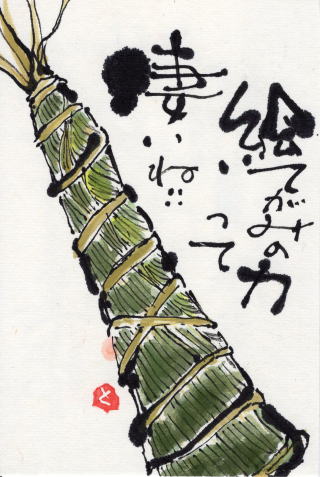 絵てがみの力
って
凄いね!!
と